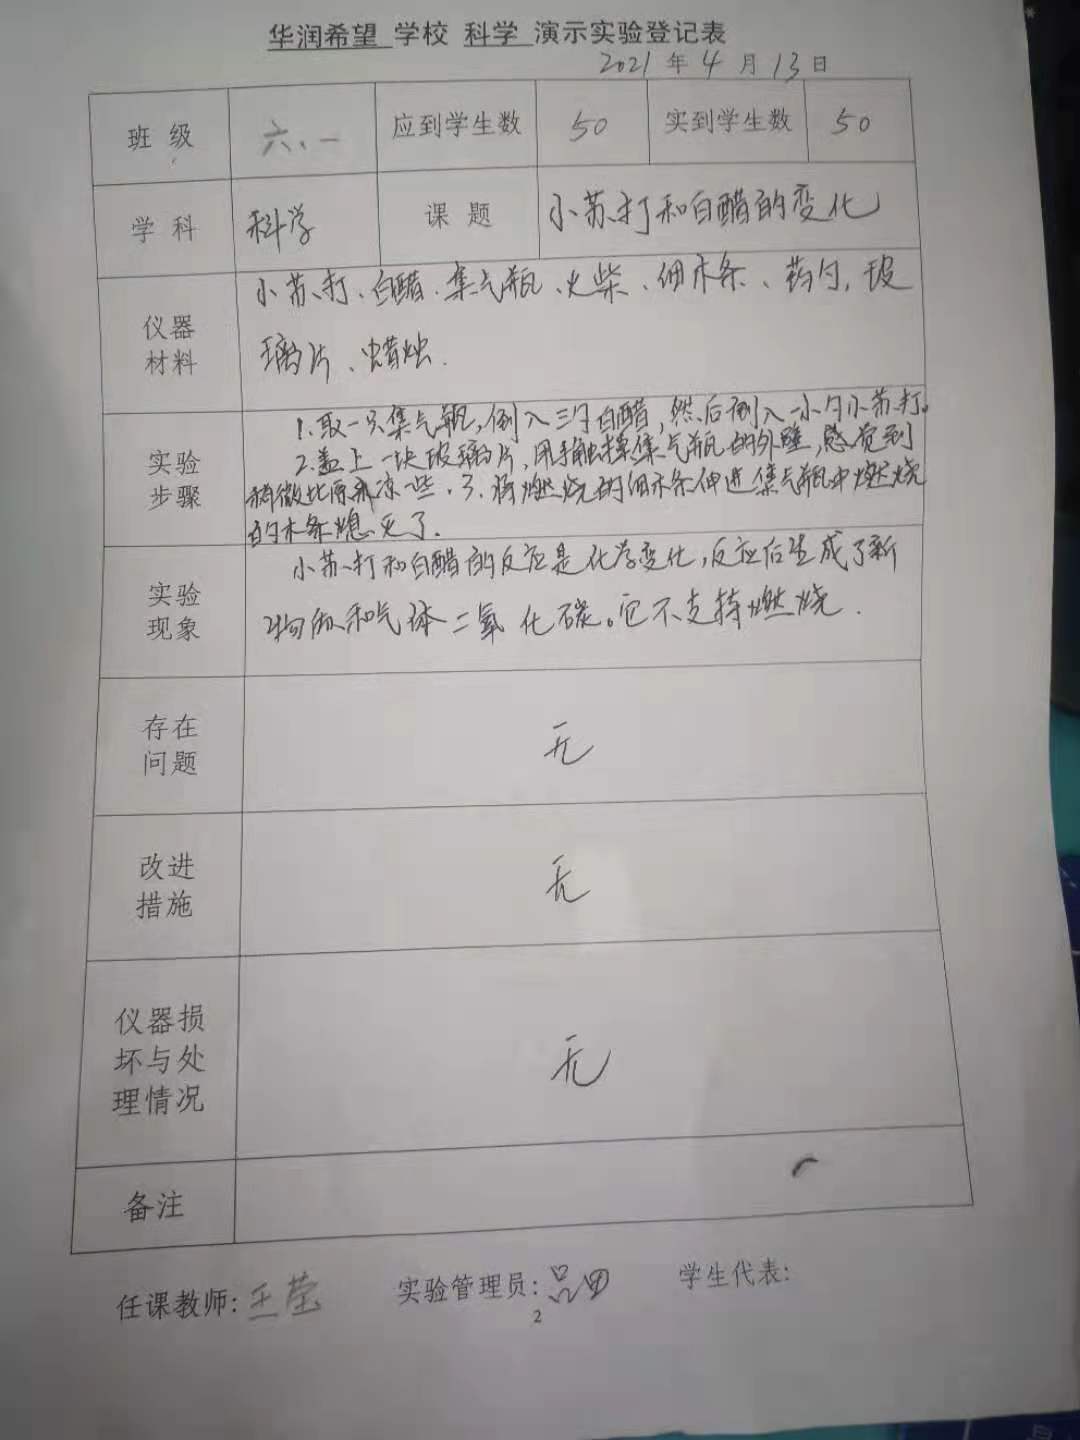 华润希望 学校 科学 演示实验登记表
2021 年 4 月 13 日
班 级 六、一 应到学生数 50 实到学生数 50
学 科 科学 课 题 小苏打和白醋的变化
仪器
材料
小苏打、白醋、集气瓶、火柴、细木条、药勺,玻
璃片、蜡烛.
实验
步骤
1.取一只集气瓶,倒入三勺白醋,然后倒入一小勺小苏打。
2.盖上一块玻璃片,用手触摸集气瓶的外壁,感觉到
稍微比原来凉一些.3.将燃烧的细木条伸进集气瓶中燃烧
的木条熄灭了.
实验
现象
小苏打和白醋的反应是化学变化,反应后生成了新
物质和气体二氧化碳。它不支持燃烧.
存在
问题
无
改进
措施
无
仪器损
坏与处
理情况
无
备注
任课教师:王莹 实验管理员: 学生代表:
2